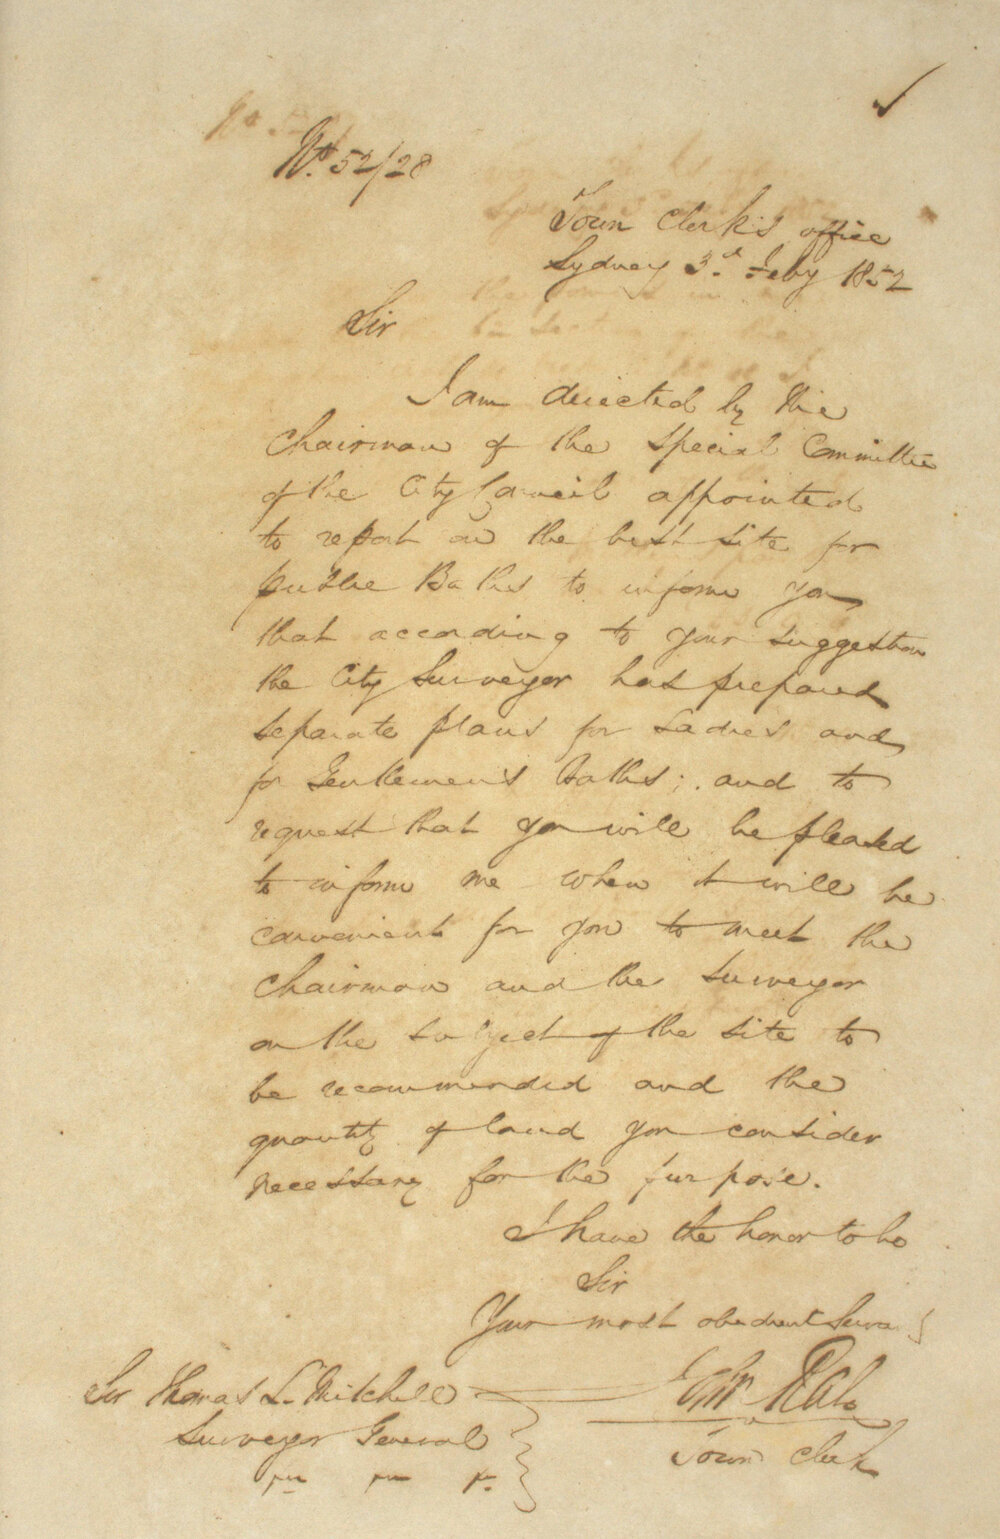 No. 52/28
Town Clerk's office
Sydney 3.d Feby 1852
Sir
I am directed by the
Chairman of the Special Committee
of the City Council appointed
to report on the best site for
public Baths to inform you
that according to your suggestion
the City Surveyor has prepared
separate plans for Ladies and
for Gentlemen's baths; and to
request that you will be pleased
to inform me when it will be
convenient for you to meet the
Chairman and the Surveyor
on the subject of the site to
be recommended and the
quantity of land you consider
necessary for the purpose.
I have the honor to be
Sir
Your most obedient
Sir Thomas L. Mitchell
Surveyor General
Town Clerk